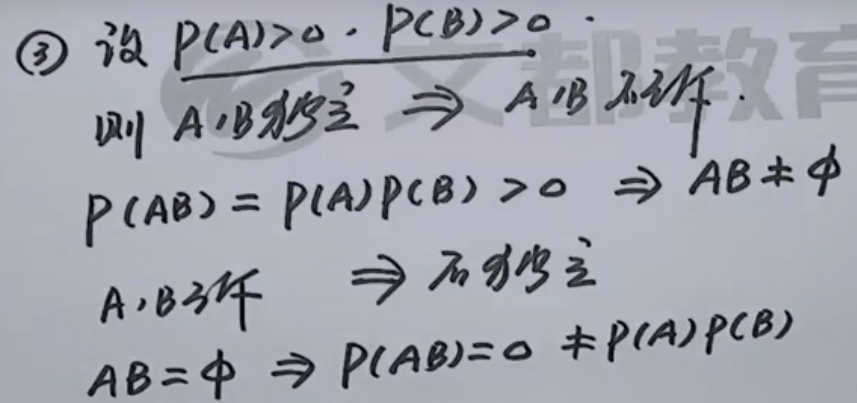 ③ 设 P(A)>0 . P(B)>0 .
则 A,B独立 ⇒ A,B 不互斥.
P(AB) = P(A)P(B) > 0 ⇒ AB ≠ φ
A,B互斥 ⇒ 不独立
AB = φ ⇒ P(AB)=0 ≠ P(A)P(B)
文都教育